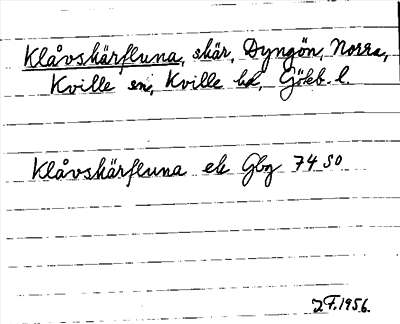 Klåvskärfluna, skär, Dyngön, Norra,
Kville sn, Kville hd, Göteb. l.
Klåvskärfluna ek Gbg 74 SO
J.F. 1956.